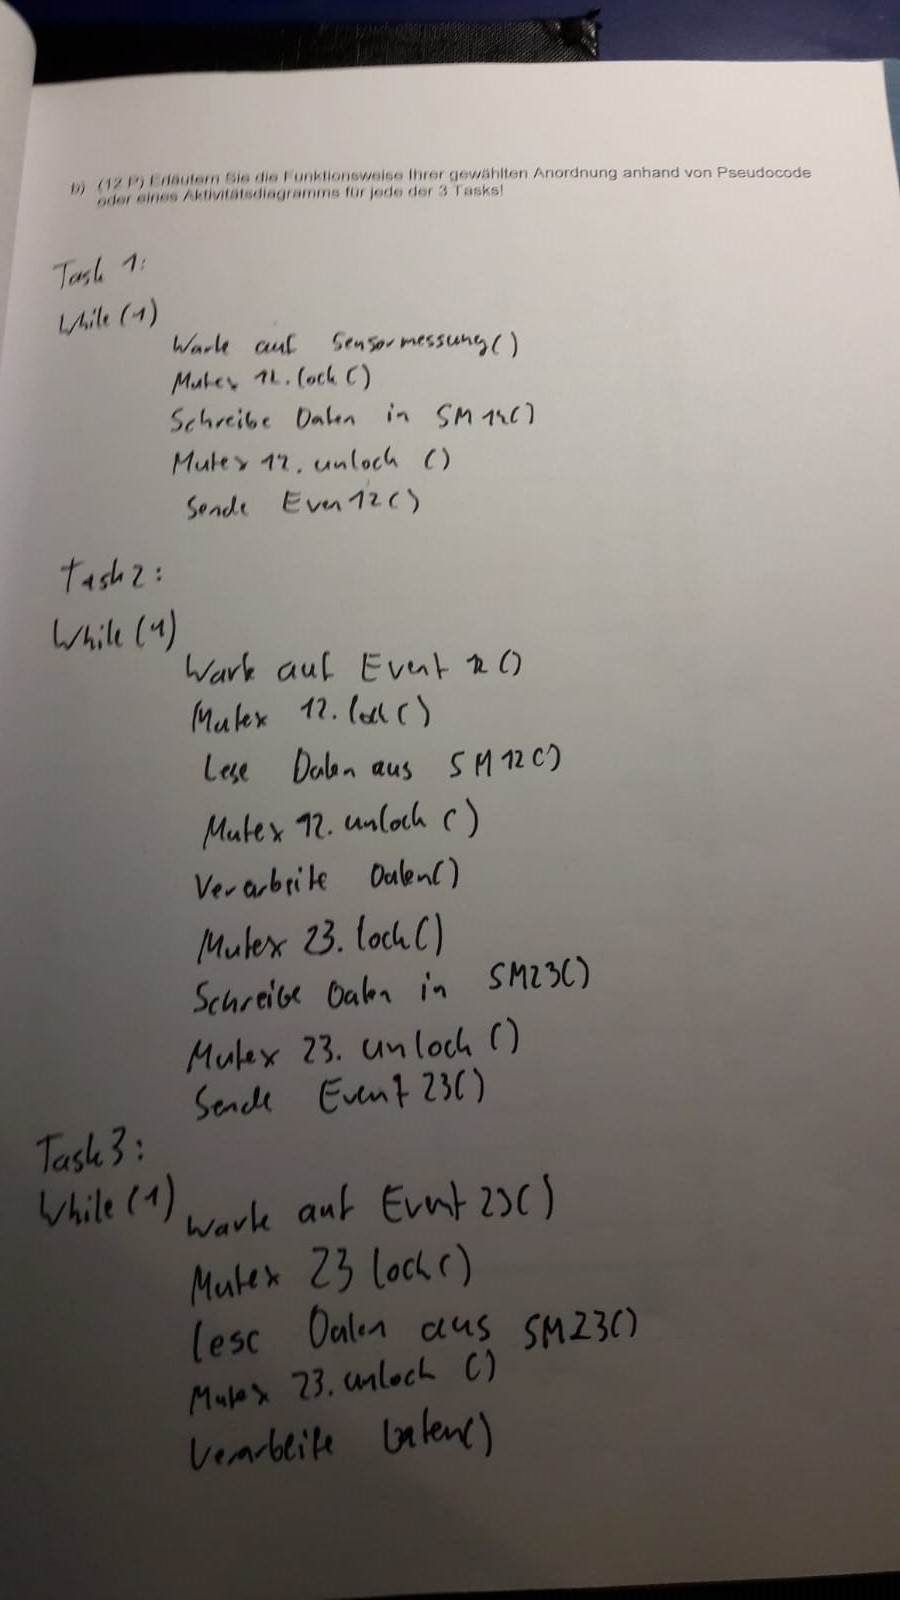 b) (12 P) Erläutern Sie die Funktionsweise Ihrer gewählten Anordnung anhand von Pseudocode
oder eines Aktivitätsdiagramms für jede der 3 Tasks!
Task 1:
While (1)
Warte auf Sensormessung()
Mutex 12. lock ()
Schreibe Daten in SM 12()
Mutex 12. unlock ()
Sende Even 12 ()
Task 2:
While (1)
Warte auf Event 12 ()
Mutex 12. lock ()
Lese Daten aus SM 12 ()
Mutex 12. unlock ()
Verarbeite Daten()
Mutex 23. lock ()
Schreibe Daten in SM23()
Mutex 23. unlock ()
Sende Event 23()
Task 3:
While (1)
Warte auf Event 23()
Mutex 23 lock ()
Lese Daten aus SM23()
Mutex 23. unlock ()
Verarbeite Daten()